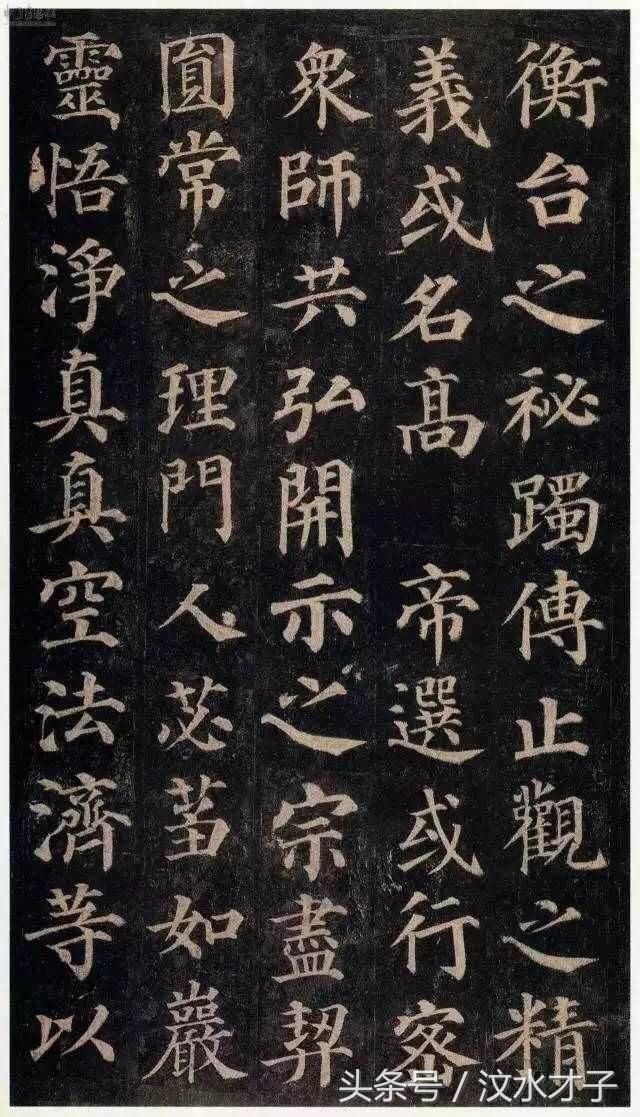 衡台之秘躅傳止觀之精
義或名高　帝選或行密
衆師共弘開示之宗盡契
圎常之理門人苾芻如巖
靈悟淨真真空法濟等以
头条号 / 汶水才子